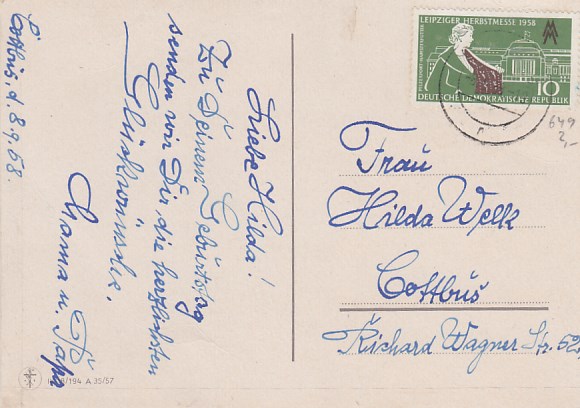 Cottbus, d. 8.9.58.
Liebe Hilda!
Zu Deinem Geburtstag
senden wir Dir die herzlichsten
Glückwünsche.
Mama u. Papa
LEIPZIGER HERBSTMESSE 1958
10
DEUTSCHE DEMOKRATISCHE REPUBLIK
649
2,-
Frau
Hilda Welk
Cottbus
Richard Wagner Str. 52
/194 A 35/57